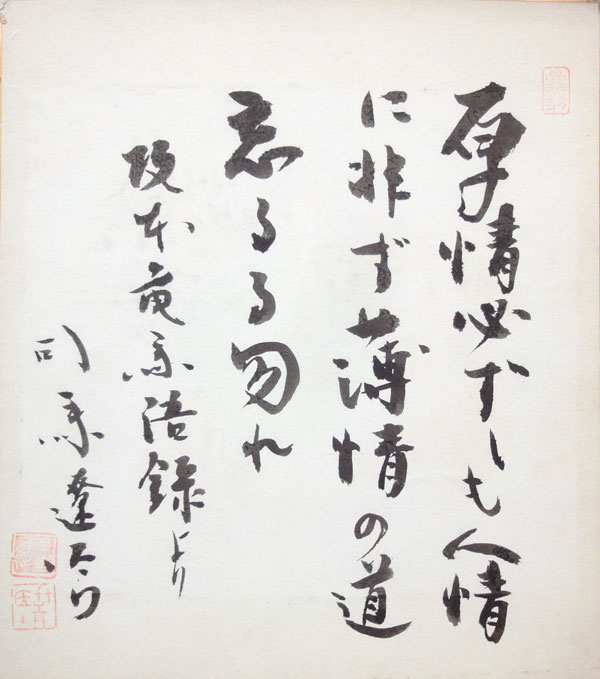 厚情必ずしも人情
に非ず薄情の道
忘るる勿れ
坂本竜馬語録より
司馬遼太郎